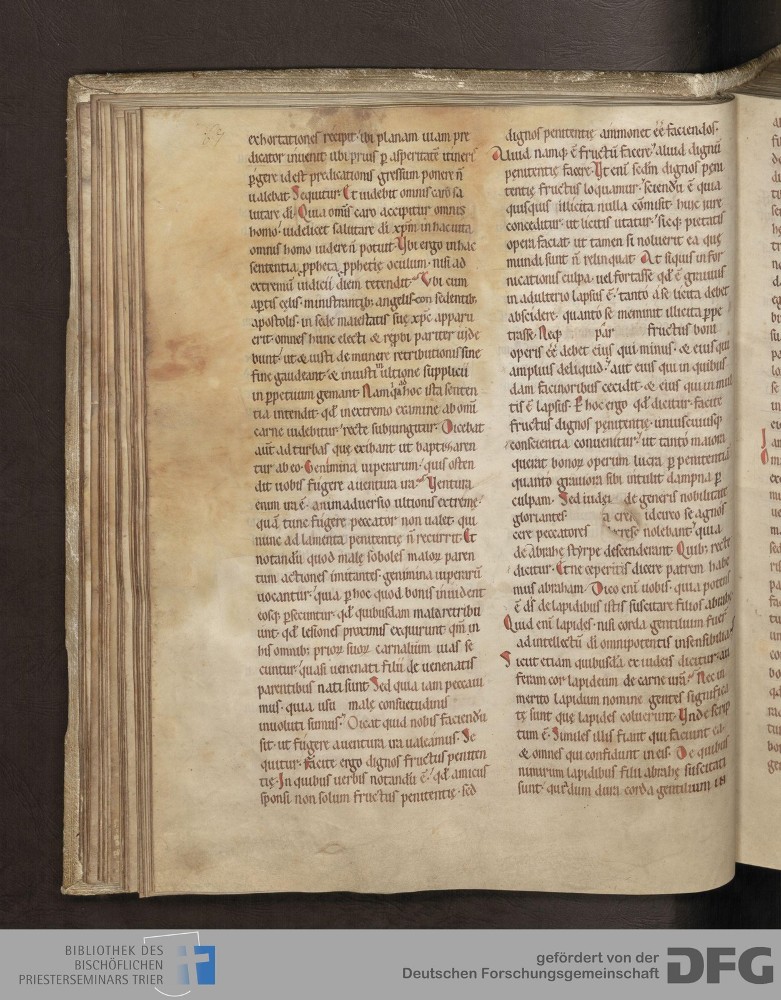 exhortationes recipit. ibi planam uiam pre
dicator inuenit ubi prius p asperitatē itineris
pgere id est predicationis gressum ponere n̄
ualebat. Sequitur. Et uidebit omnis caro sa
lutare di. Quia omīs caro accipitur omnis
homo. uidelicet salutare di xpm in hac uita
omnis homo uidere n̄ potuit. Ubi ergo in hac
sententia ppheta pphetię oculum. nisi ad
extremū iudicii diem tetendit. Ubi cum
aptis cęlis. ministrantib; angelis. con sedentib;
apostolis. in sede maiestatis suę xpc apparu
erit. omnes hunc electi & repbi pariter uide
bunt. ut & iusti de munere retributionis sine
fine gaudeant. & iniusti in ultione supplicii
in ppetuum gemant. Nam quia hoc ista senten
tia intendit. qd in extremo examine ab omi
carne uidebitur. recte subiungitur. Dicebat
aut ad turbas que exibant ut baptizaren
tur ab eo. Genimina uiperarum. quis osten
dit uobis fugere a uentura ira. Uentura
enim ira ē. animaduersio ultionis extremę.
quā tunc fugere peccator non ualet. qui
nunc ad lamenta penitentię n̄ recurrit. Et
notandū quod malę soboles malor paren
tum actiones imitantes. genimina uiperarū
uocantur. quia p hoc quod bonis inuident
eosq; psecuntur. qd quibusdam mala retribu
unt. qd lesiones proximis exquirunt. qm in
his omnib; prior suor carnalium uias se
cuntur. quasi uenenati filii de uenenatis
parentibus nati sunt. Sed quia iam peccaui
mus. quia usu malę consuetudinis
inuoluti sumus. Dicat quid nobis faciendū
sit. ut fugere a uentura ira ualeamus. Se
quitur. Facite ergo dignos fructus peniten
tię. In quibus uerbis notandū ē. qd amicus
sponsi non solum fructus penitentię. sed
dignos penitentię ammonet eē faciendos.
Aliud namq; ē fructū facere. aliud dignū
penitentię facere. Ut enī sedm dignos peni
tentię fructus loquamur. sciendū ē quia
quisquis illicita nulla cōmisit. huic iure
conceditur. ut licitis utatur. sicq; pietatis
opera faciat. ut tamen si noluerit ea quę
mundi sunt n̄ relinquat. At si quis in for
nicationis culpa. uel fortasse qd ē grauius
in adulterio lapsus ē. tanto a se licita debet
abscidere. quanto se meminit illicita ppe
trasse. Neq; par fructus boni
operis eē debet eius qui minus. & eius qui
amplius deliquid. aut eius qui in quibus
dam facinoribus cecidit. & eius qui in mul
tis ē lapsus. P hoc ergo qd dicitur. facite
fructus dignos penitentię. uniuscuiusq;
conscientia conuenitur. ut tanto maiora
querat bonor operum lucra p penitentiā
quanto grauiora sibi intulit dampna p
culpam. Sed iudęi de generis nobilitate
gloriantes idcirco se agnos
cere peccatores nolebant. quia
de abrahę styrpe descenderant. Quib; recte
dicitur. Et ne ceperitis dicere patrem habe
mus abraham. Dico enī uobis. quia potens
ē ds de lapidibus istis suscitare filios abrahę
Quid enī lapides. nisi corda gentilium fuer
ad intellectū di omnipotentis insensibilia.
Sicut etiam quibusdā ex iudeis dicitur. au
feram cor lapideum de carne urā. Nec in
merito lapidum nomine gentes significa
tę sunt quę lapides coluerunt. Unde scrip
tum ē. Similes illis fiant qui faciunt ea.
& omnes qui confidunt in eis. De quibus
nimirum lapidibus filii abrahę suscitati
sunt. quia dum dura corda gentilium in
BIBLIOTHEK DES
BISCHÖFLICHEN
PRIESTERSEMINARS TRIER
gefördert von der
Deutschen Forschungsgemeinschaft
DFG